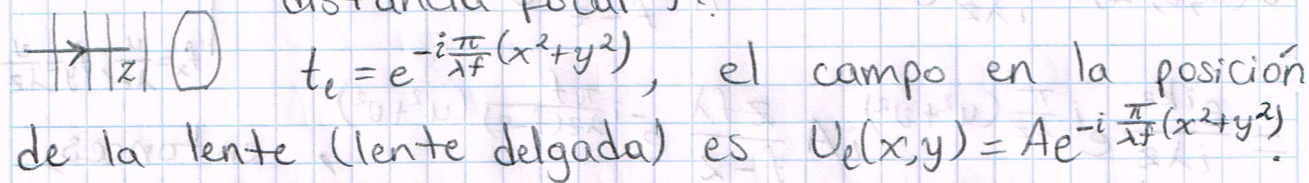 distancia focal
z t_e = e^{-i\frac{\pi}{\lambda f}(x^2+y^2)}, el campo en la posición
de la lente (lente delgada) es U_e(x,y) = Ae^{-i\frac{\pi}{\lambda f}(x^2+y^2)}.